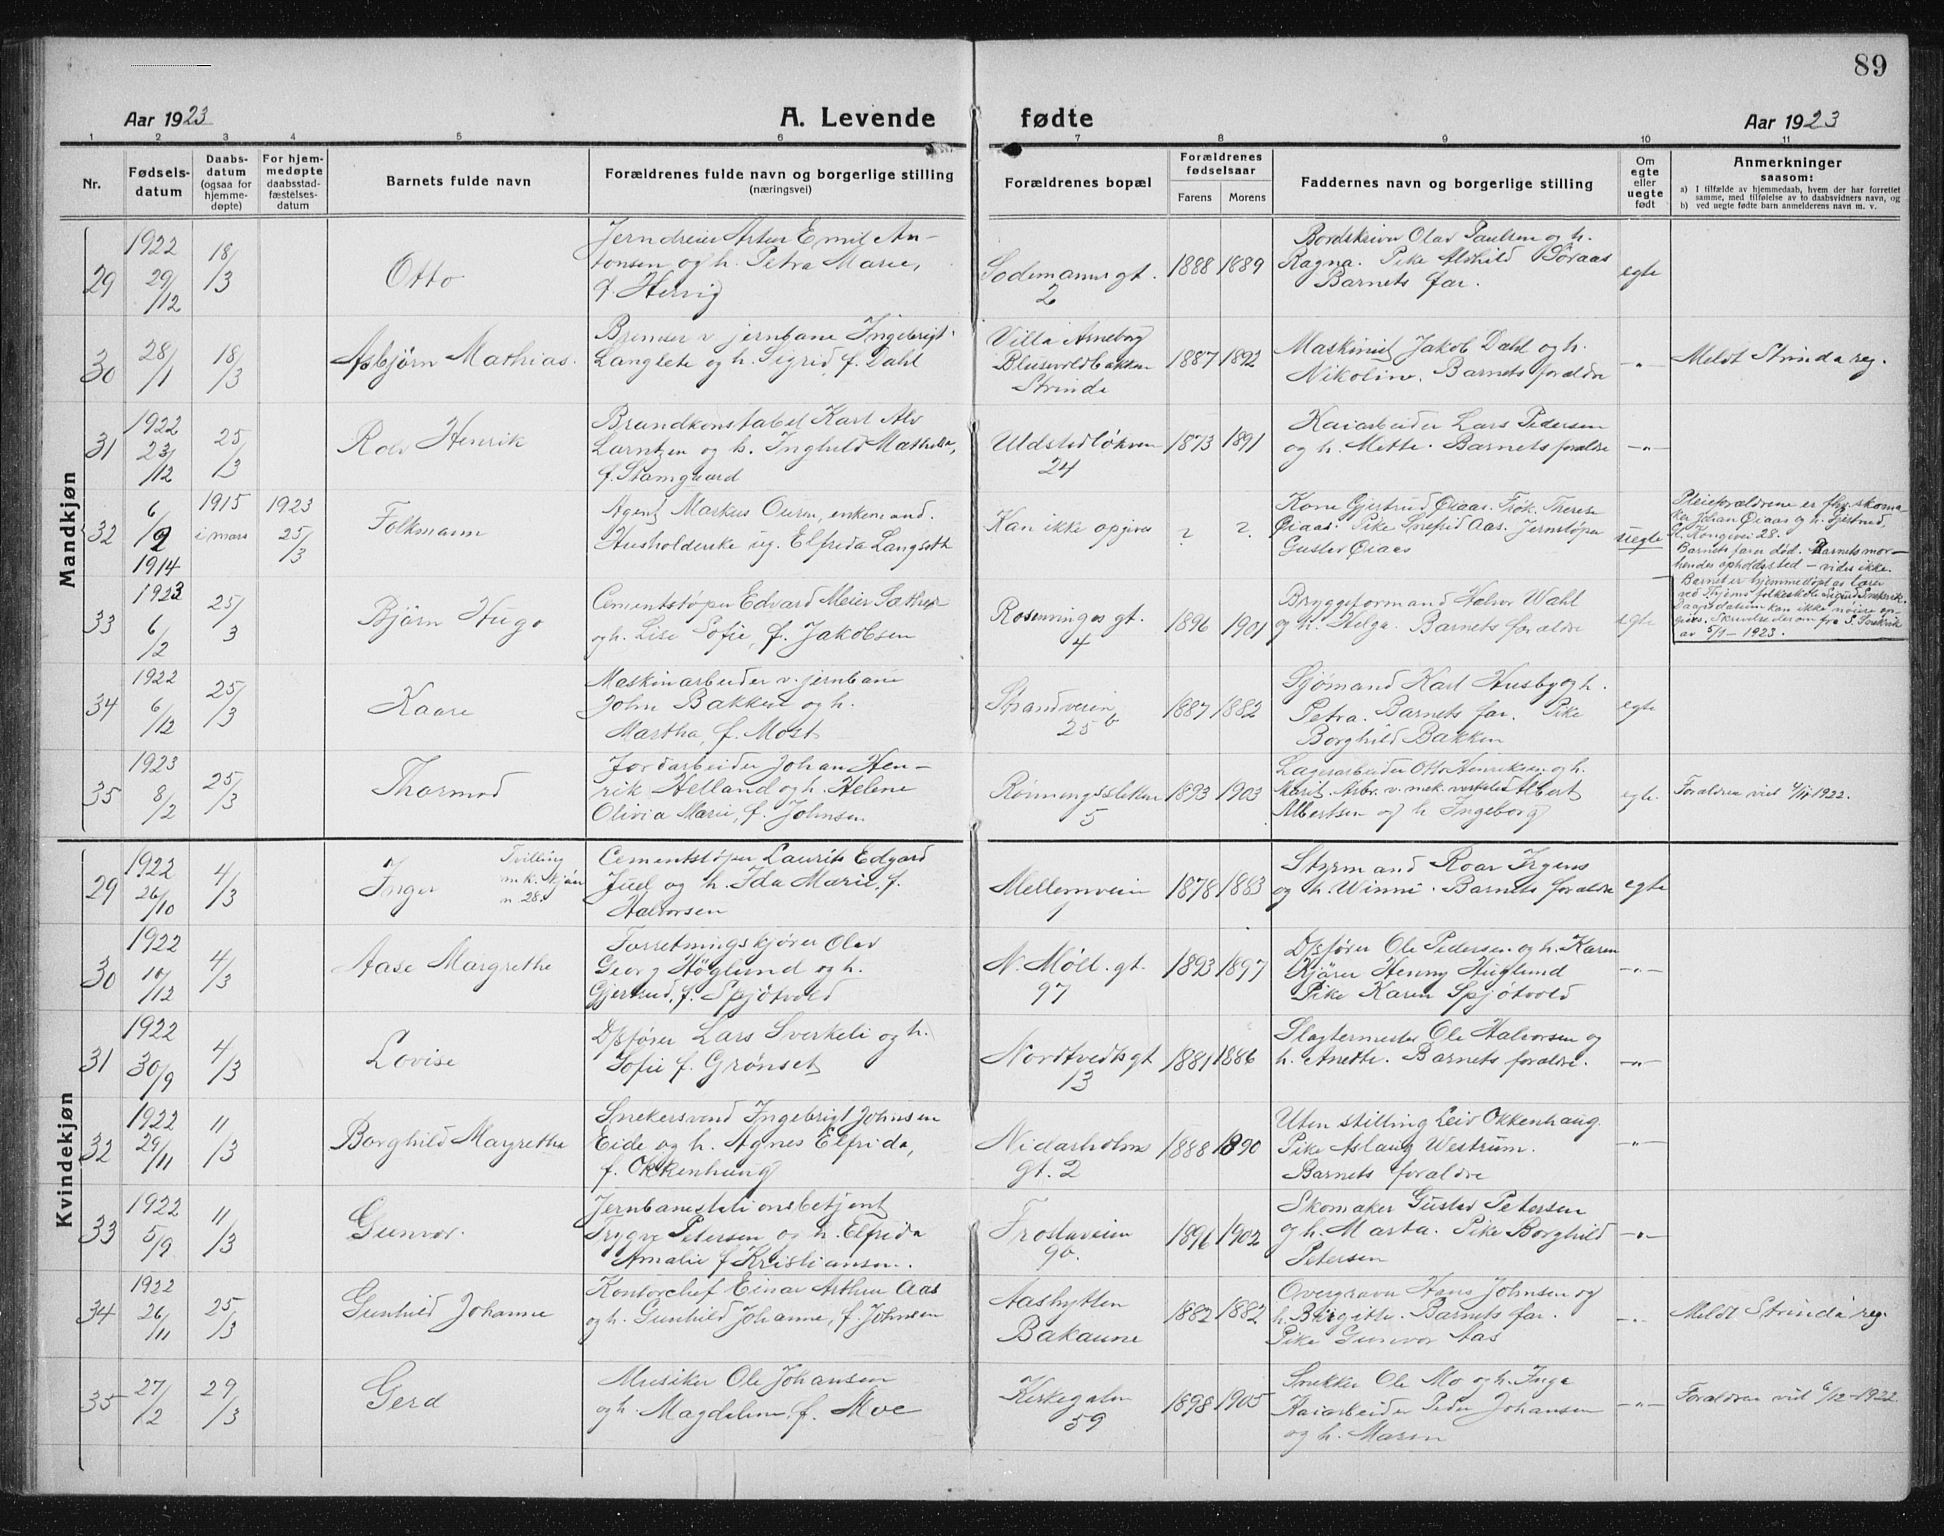 89
Aar 1923 A. Levende fødte Aar 1923
1 2 3 4 5 6 7 8 9 10 11
Nr. Fødsels-datum Daabs-datum (ogsaa for hjemme-døpte) For hjem-medøpte daabsstad-fæstelses-datum Barnets fulde navn Forældrenes fulde navn og borgerlige stilling (næringsvei) Forældrenes bopæl Forældrenes fødselsaar Farens Morens Faddernes navn og borgerlige stilling Om egte eller uegte født Anmerkninger saasom:
a) I tilfælde av hjemmedaab, hvem der har forrettet samme, med tilføielse av to daabsvidners navn, og
b) ved uegte fødte barn anmelderens navn m. v.
Mandkjøn
29 1922 29/12 18/3 Otto
Jerndreier Artur Emil An-
tonsen og h. Petra Marie,
f. Hervig
Sodemanns gt.
2
1888 1889
Bordskriver Olav Paulsen og h.
Ragna. Pike Alvhild Boraas
Barnets far.
egte
30 28/1 18/3 Asbjörn Mathias.
Bremser v. jernbane Ingebrigt
Langlete og h. Sigrid, f. Dahl
Villa Arneborg
Blusevoldbakken
Strinda
1887 1892
Maskinist Jakob Dahl og h.
Nikoline. Barnets forældre
-"-
Meldt Strinda reg.
31 1922 23/12 25/3 Rolv Henrik
Brandkonstabel Karl Alv
Larntzen og h. Inghild Mathilde,
f. Stamgaard
Udstedløkven
24
1873 1891
Kaiarbeider Lars Pedersen
og h. Mette. Barnets forældre
-"-
32 6/2 1914 1915 i mars 1923 25/3 Folkmann
Agent Markus Ouren, enkemand.
Husholderske ug. Elfrida Langseth
Kan ikke opgives
? ?
Kone Gjertrud Øiaas. Frøk. Therese
Øiaas. Pike Snefrid Aas. Jernstøper
Gustav Øiaas
uegte
Pleieforældrene er skoma-
ker Johan Øiaas og h. Gjertrud,
Gl. Kongevei 28.
Barnets far er død. Barnets mor-
hendes opholdssted - vides ikke.
Barnet er hjemmedøpt av lærer
ved folkeskole Sigurd
Daapsdatum kan ikke nöiere op-
gives. Skrivelse derom fra S.
av 5/1-1923.
33 1923 6/2 25/3 Bjørn Hugo
Cementstøper Edvard Meier Sather
og h. Lise Sofie, f. Jakobsen
Rosenvinges gt.
4
1896 1901
Bryggeformand Halvor Wahl
og h. Helga. Barnets forældre
egte
34 1922 6/12 25/3 Kaare
Maskinarbeider v. jernbane
John Bakken og h.
Martha, f. Most
Strandveien
25 b
1887 1882
Sjømand Karl Husby og h.
Petra. Barnets far. Pike
Borghild Bakken
egte
35 1923 8/2 25/3 Thormod
Jordarbeider Johan Hen-
rik Helland og h. Helene
Olivia Marie, f. Johnsen
Rönningssletten
5
1893 1903
Lagerarbeider Otto Henriksen og h.
Marit. Arbr. v. mek. verksted Albert
Albertsen og h Ingeborg
egte.
Forældre viet 4/11 1922.
Kvindekjøn
29 1922 26/10 4/3 Inger
Tvilling
m. k. kjön
n. 28.
Cementstøper Laurits Edgard
Juel og h. Ida Marie, f.
Halvorsen
Mellemveien
9
1878 1883
Styrmand Roar Irgens
og h. Winni. Barnets forældre
egte
30 1922 10/12 4/3 Aase Margrethe
Forretningskjører Olav
Georg Höglund og h.
Gjertrud, f. Spjøtvold
N. Möll. gt.
97
1893 1897
D/sfører Ole Pedersen og h. Karen
Kjører Henny Huglund
Pike Karen Spjøtvold
-"-
31 1922 30/9 4/3 Lovise
D/sfører Lars Sverkeli og h.
Sofie f. Grønset
Nordtvedts gt
13
1881 1886
Slagtermester Ole Halvorsen og
h. Anette. Barnets forældre.
-"-
32 1922 29/11 11/3 Borghild Margrethe
Snekersvend Ingebrigt Johnsen
Eide og h. Agnes Elfrida,
f. Okkenhaug
Nidarholms
gt. 2
1888 1890
Uten stilling Leiv Okkenhaug.
Pike Aslaug Westrum.
Barnets forældre
-"-
33 1922 5/9 11/3 Gunvor.
Jernbanestationsbetjent
Trygve Petersen og h. Elfrida
Amalie f Kristiansen.
Frostaveien
9b.
1896 1902
Skomaker Gustav Petersen
og h. Marta. Pike Borghild
Petersen
-"-
34 1922 26/11 25/3 Gunhild Johanne
Kontorchef Einar Arthur Aas
og h. Gunhild Johanne, f. Johnsen
Aashytten
Bakaune
1882 1882
Overgraver Hans Johnsen og
h. Birgitte. Barnets far.
Pike Gunvor Aas
-"-
Meldt Strinda reg.
35 27/2 29/3 Gerd
Musiker Ole Johansen
og h. Magdalene, f. Moe
Kirkegaten
59
1898 1905
Snekker Ole Mo og h. Inga
Kaiarbeider Peder Johansen
og h. Maren
-"-
Forældre viet 6/12-1922